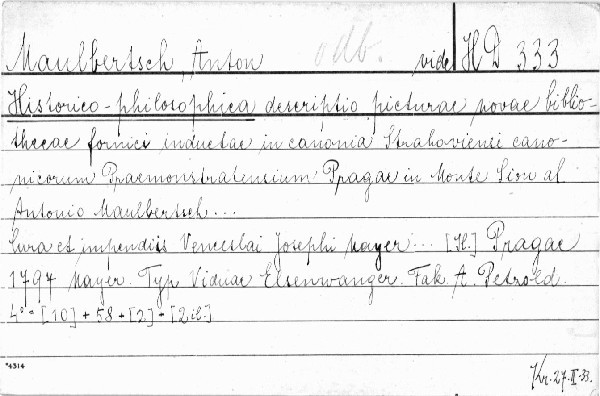 Maulbertsch, Anton odb. vide HD 333
Historico-philosophica descriptio picturae novae biblio-
thecae fornici inductae in canonia Strahoviensi cano-
nicorum Praemonstratensium Pragae in Monte Sion al
Antonio Maulbertsch...
Cura et impendiis Venceslai Josephi Mayer... [Il.] Pragae
1797 Mayer. Typ. Viduae Elsenwanger. Fak. A. Petzold.
4°= [10] + 58 + [2] + [2 il.]
*4314
Kr. 27.II.33.